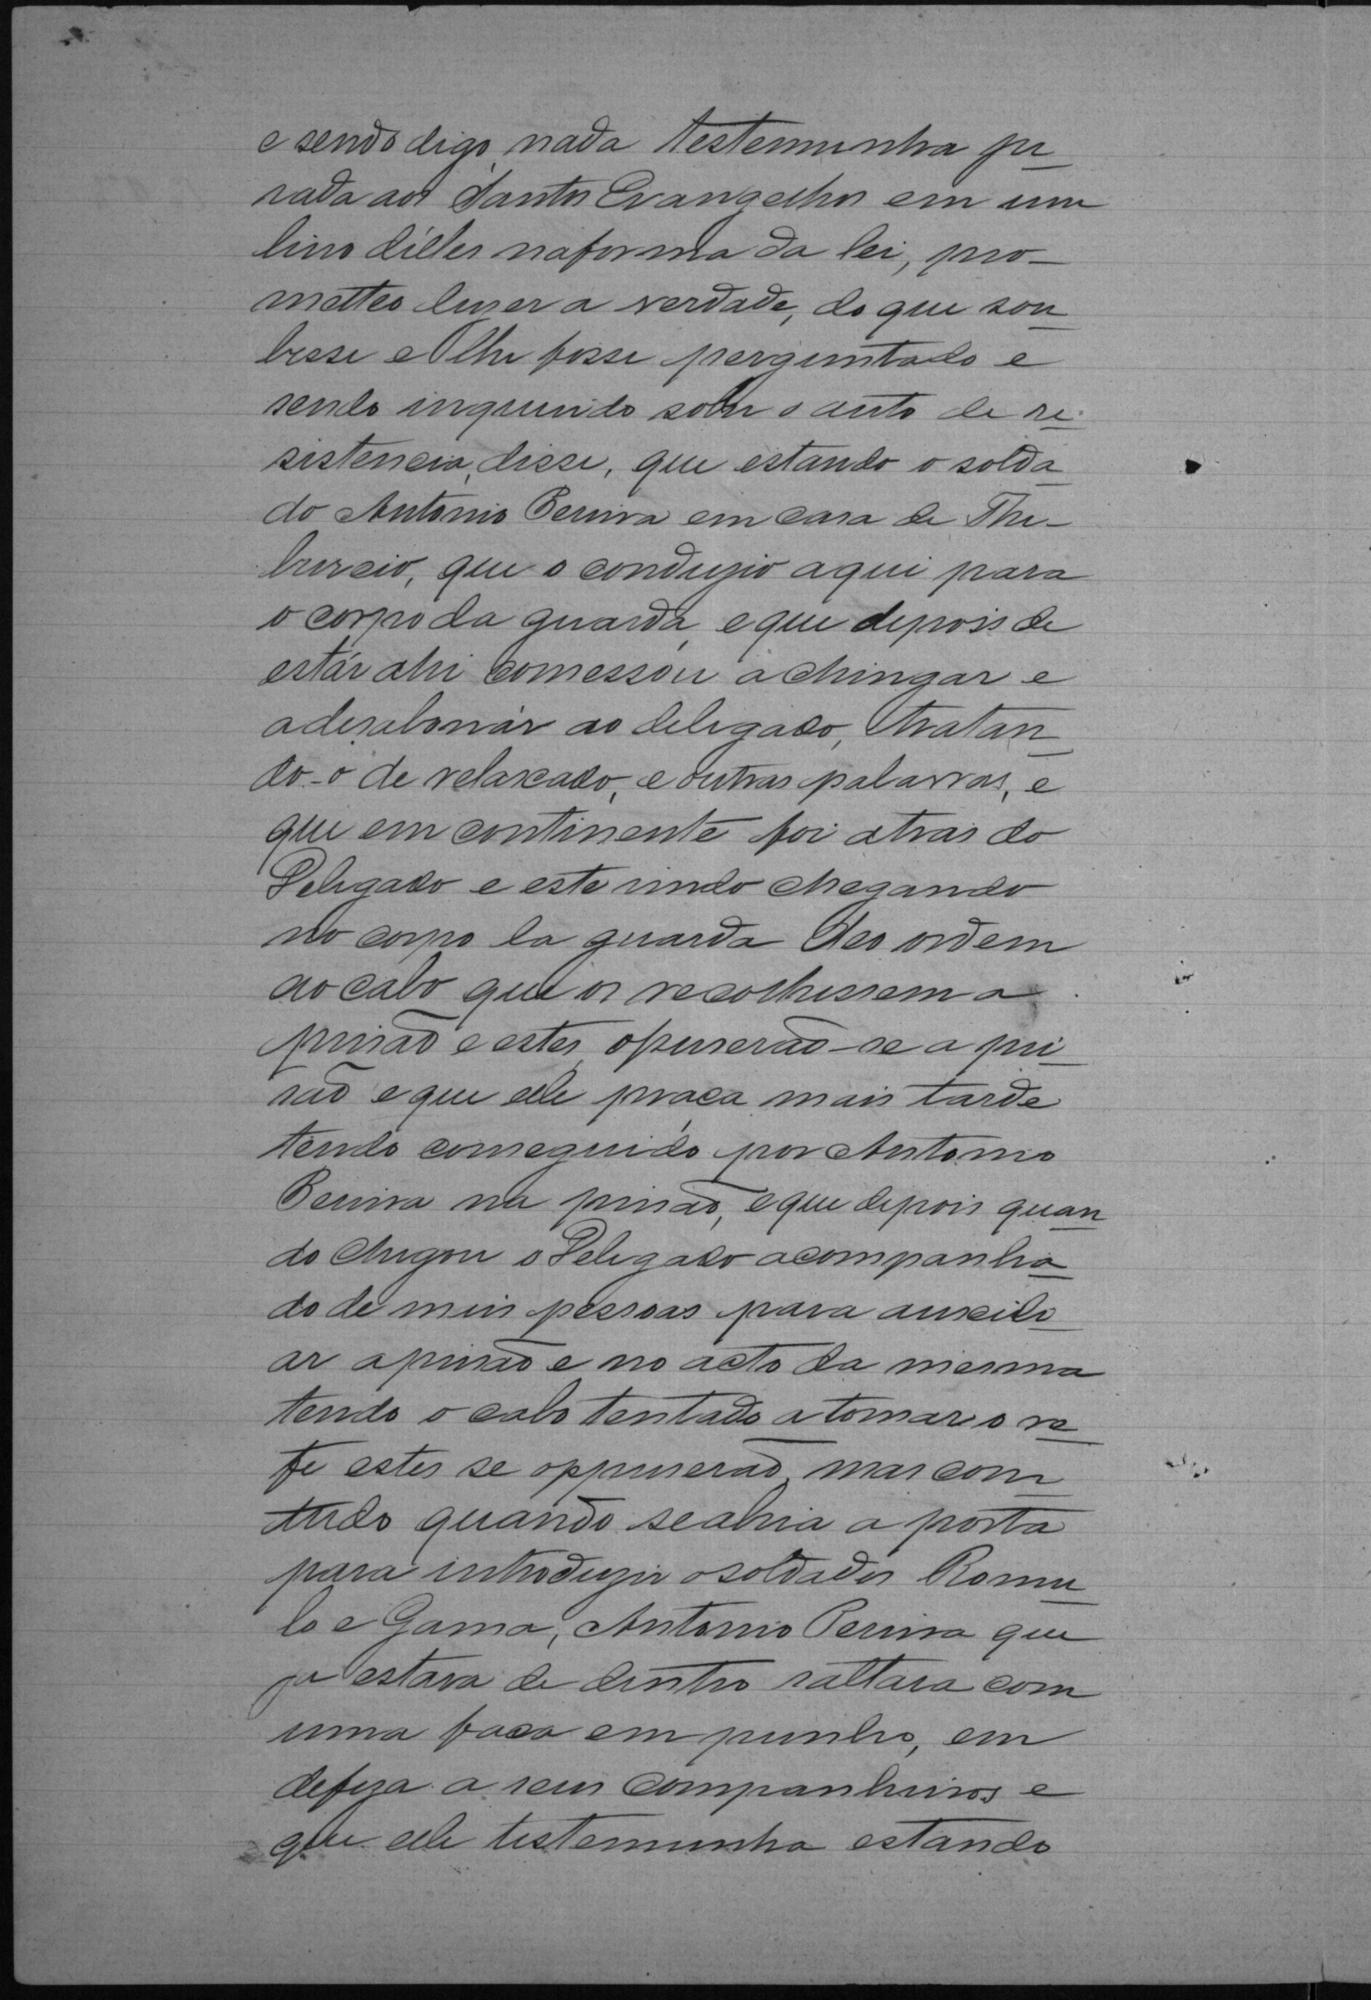 e sendo digo, nada testemunha ju
rada aos Santos Evangelhos em um
livro délles na forma da lei, pro-
metteo diser a verdade, do que sou
besse e lhe fosse perguntado e
sendo inquirido sobre o auto de re
sistencia, disse, que estando o solda
do Antonio Pereira em casa de The-
burcio, que o condusio aqui para
o corpo da guarda, e que depois de
estár ahi comessou a chingar e
a desabonár ao delegado, tratan
do-o de relaxado, e outras palavras, e
que em continente foi atras do
Delegado e este vindo chegando
no corpo da guarda deo ordem
ao cabo que os recolhessem a
prisão e estes, opuserão-se a pri
são e que elle praça mais tarde
tendo conseguido por Antonio
Pereira na prisão, e que depois quan
do chegou o Delegado acompanha
do de mais pessoas para auxili
ar a prisão e no acto da mesma
tendo o cabo tentado a tomar o re
fe estes se oppuserão, mas com
tudo quando se abria a porta
para introdusir os soldados Romu
lo e Gama, Antonio Pereira que
ja estava de dentro saltara com
uma faca em punho, em
defesa a seus companheiros e
que elle testemunha estando